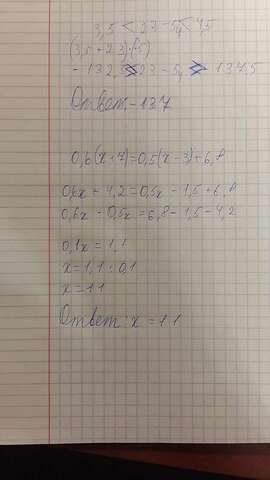 3,5 < 23 - 5y < 4,5
(3,5 + 23)·(-5)
- 132,5 > 23 - 5y > 137,5
Ответ - 137
0,6(x+7)=0,5(x-3)+6,8
0,6x + 4,2 = 0,5x - 1,5 + 6,8
0,6x - 0,5x = 6,8 - 1,5 - 4,2
0,1x = 1,1
x = 1,1 : 0,1
x = 11
Ответ: x = 11